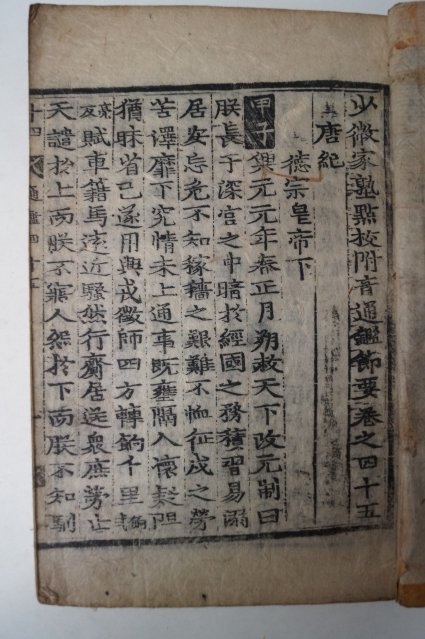 少微家塾點校附音通鑑節要卷之四十五
唐紀
德宗皇帝下
甲子興元元年春正月朔赦天下改元制曰
朕長于深宮之中暗於經國之務積習易溺
居安忘危不知稼穡之艱難不恤征戍之勞
苦澤靡下究情未上通事既壅隔人懷疑阻
猶昧省己遂用興戎徵師四方轉餉千里
賦車籍馬遠近騷然行齎居送衆庶勞止
天譴於上而朕不寤人怨於下而朕不知馴
通鑑四十五